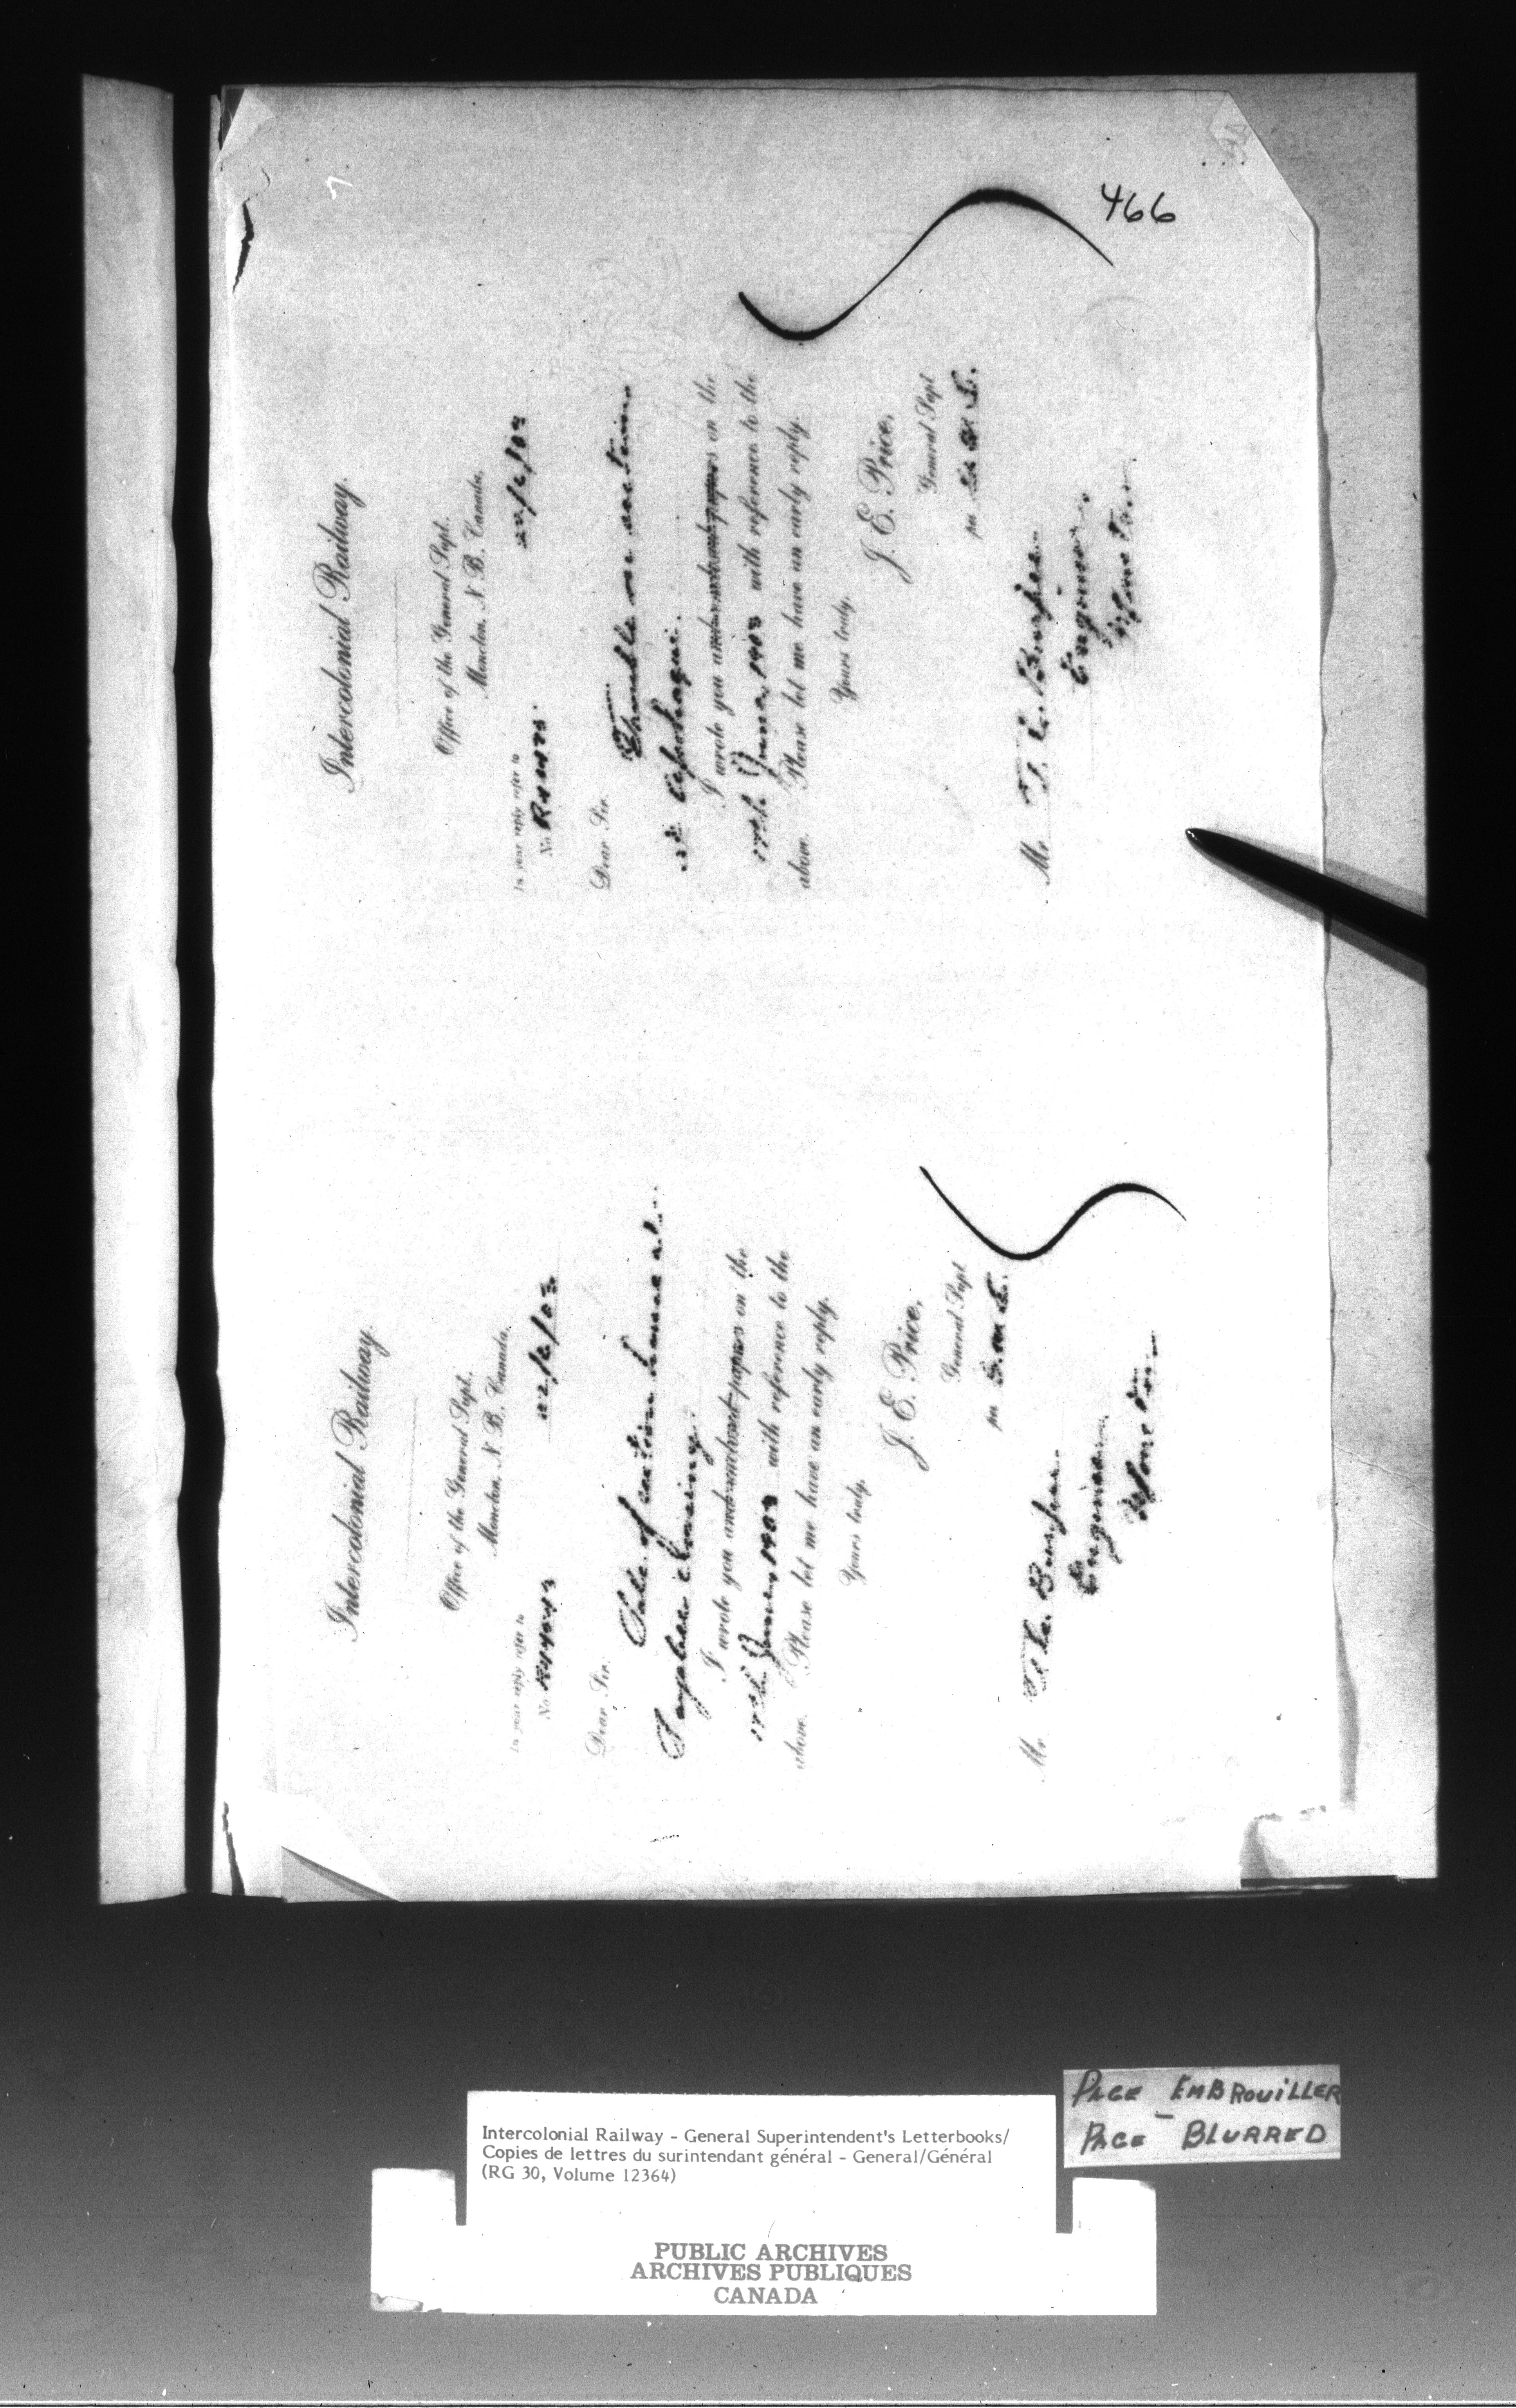 466
Intercolonial Railway.
Office of the General Supt.
Moncton, N. B. Canada.
22/6/03
In your reply refer to
No.
Dear Sir.
Sale of section house at
closing.
I wrote you and enclosed papers on the
17th June, 1903 with reference to the
above. Please let me have an early reply.
Yours truly,
J. E. Price,
General Supt
per
Mr. T. C. Burpee
Engineer
Moncton
Intercolonial Railway.
Office of the General Supt.
Moncton, N. B. Canada.
22/6/03
In your reply refer to
No.
Dear Sir.
Trouble on section
at Apohaqui.
I wrote you and enclosed papers on the
17th June, 1903 with reference to the
above. Please let me have an early reply.
Yours truly,
J. E. Price,
General Supt
per
Mr. T. C. Burpee
Engineer
Moncton
Intercolonial Railway - General Superintendent's Letterbooks/
Copies de lettres du surintendant général - General/Général
(RG 30, Volume 12364)
PUBLIC ARCHIVES
ARCHIVES PUBLIQUES
CANADA
PAGE EMBROUILLER
PAGE - BLURRED